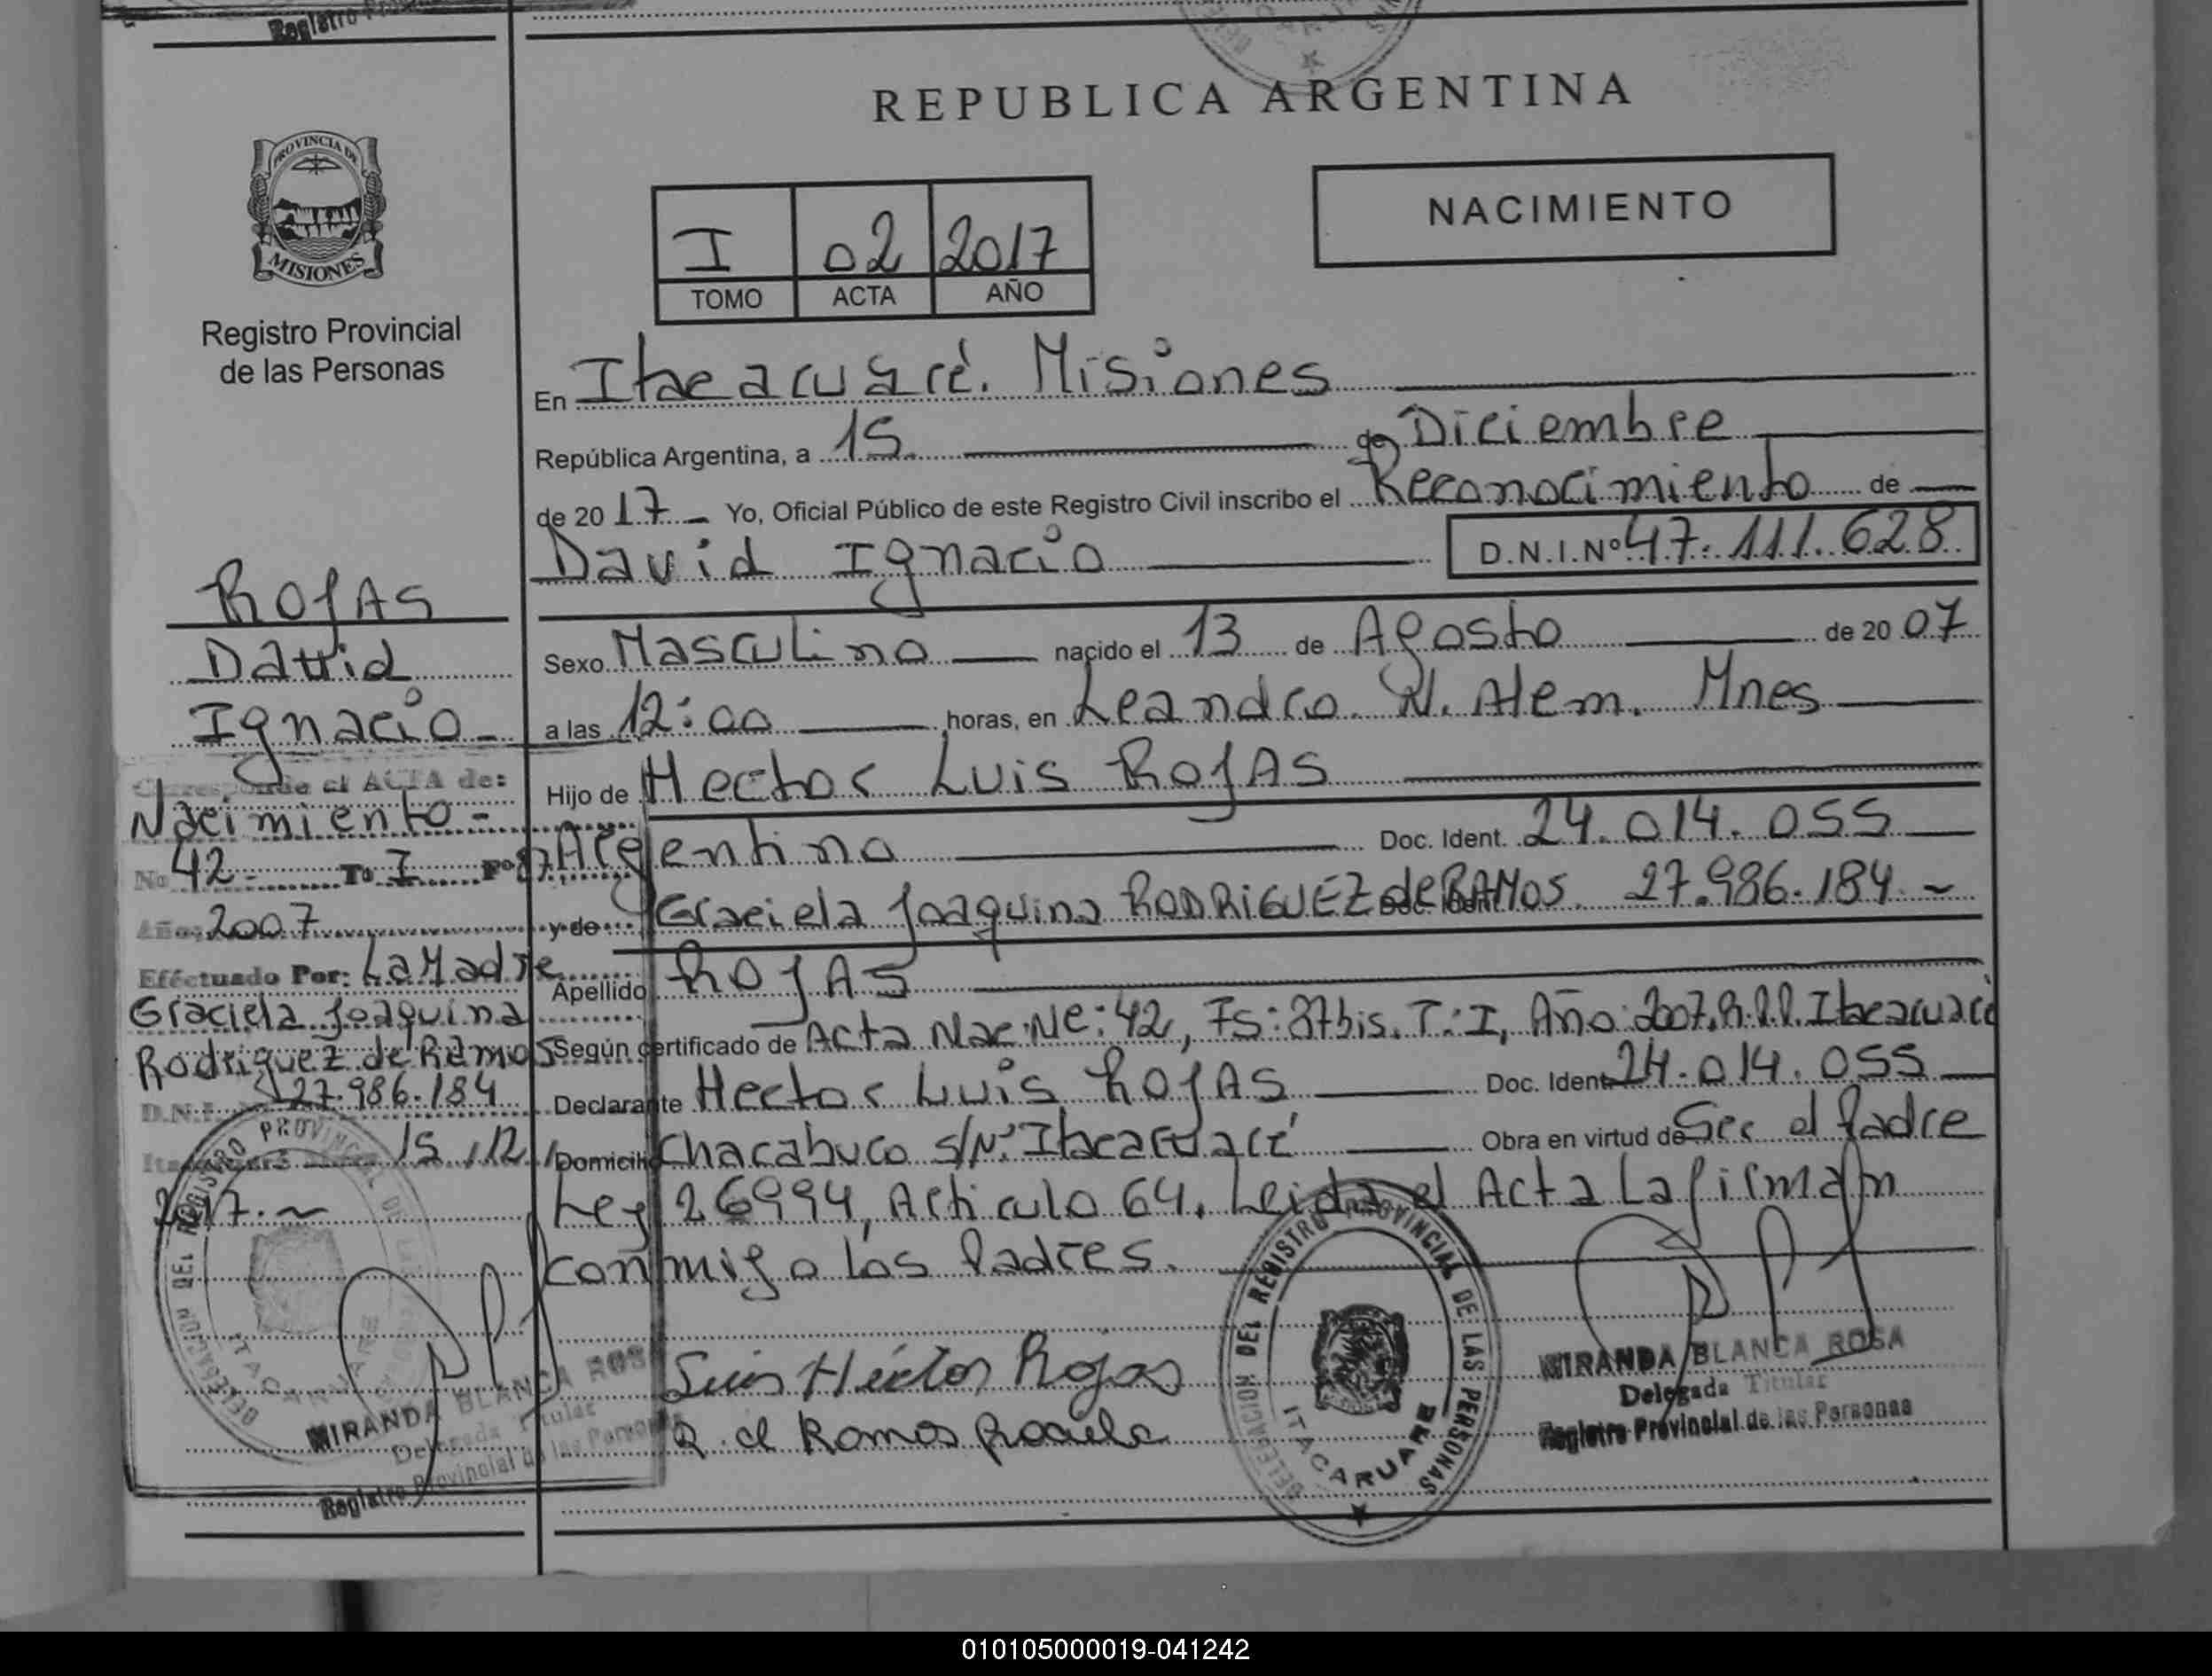 REPUBLICA ARGENTINA
PROVINCIA DE
MISIONES
Registro Provincial
de las Personas
I 02 2017
TOMO ACTA AÑO
NACIMIENTO
En Itacaruaré. Misiones
República Argentina, a 15 de Diciembre
de 2017 Yo, Oficial Público de este Registro Civil inscribo el Reconocimiento de
David Ignacio D.N.I.Nº 47.111.628
Sexo Masculino nacido el 13 de Agosto de 2007
a las 12:00 horas, en Leandro N. Alem. Mnes
Hijo de Hector Luis ROJAS
Argentino Doc. Ident. 24.014.055
y de Graciela Joaquina RODRIGUEZ de RAMOS. 27.986.184
Apellido ROJAS
Según certificado de Acta Nac. Nº: 42, Fs: 87bis, T: I, Año: 2007, R.P.P. Itacaruaré
Declarante Hector Luis ROJAS Doc. Ident 24.014.055
Domicilio Chacabuco S/Nº Itacaruaré Obra en virtud de Ser el Padre
Ley 26994, Articulo 64. Leida el Acta La firman
conmigo los Padres.
Luis Héctor Rojas
R. de Ramos
DELEGACION DEL REGISTRO PROVINCIAL DE LAS PERSONAS
ITACARUARE
MIRANDA BLANCA ROSA
Delegada Titular
Registro Provincial de las Personas
ROJAS
David
Ignacio
Corresponde al ACTA de:
Nacimiento
No 42 To I Fo 87
Año: 2007
Efectuado Por: La Madre
Graciela Joaquina
Rodriguez de Ramos
D.N.I. 27.986.184
15/12/
2017.
DELEGACION DEL REGISTRO PROVINCIAL DE LAS PERSONAS
ITACARUARE
MIRANDA BLANCA ROSA
Delegada Titular
Registro Provincial de las Personas
010105000019-041242